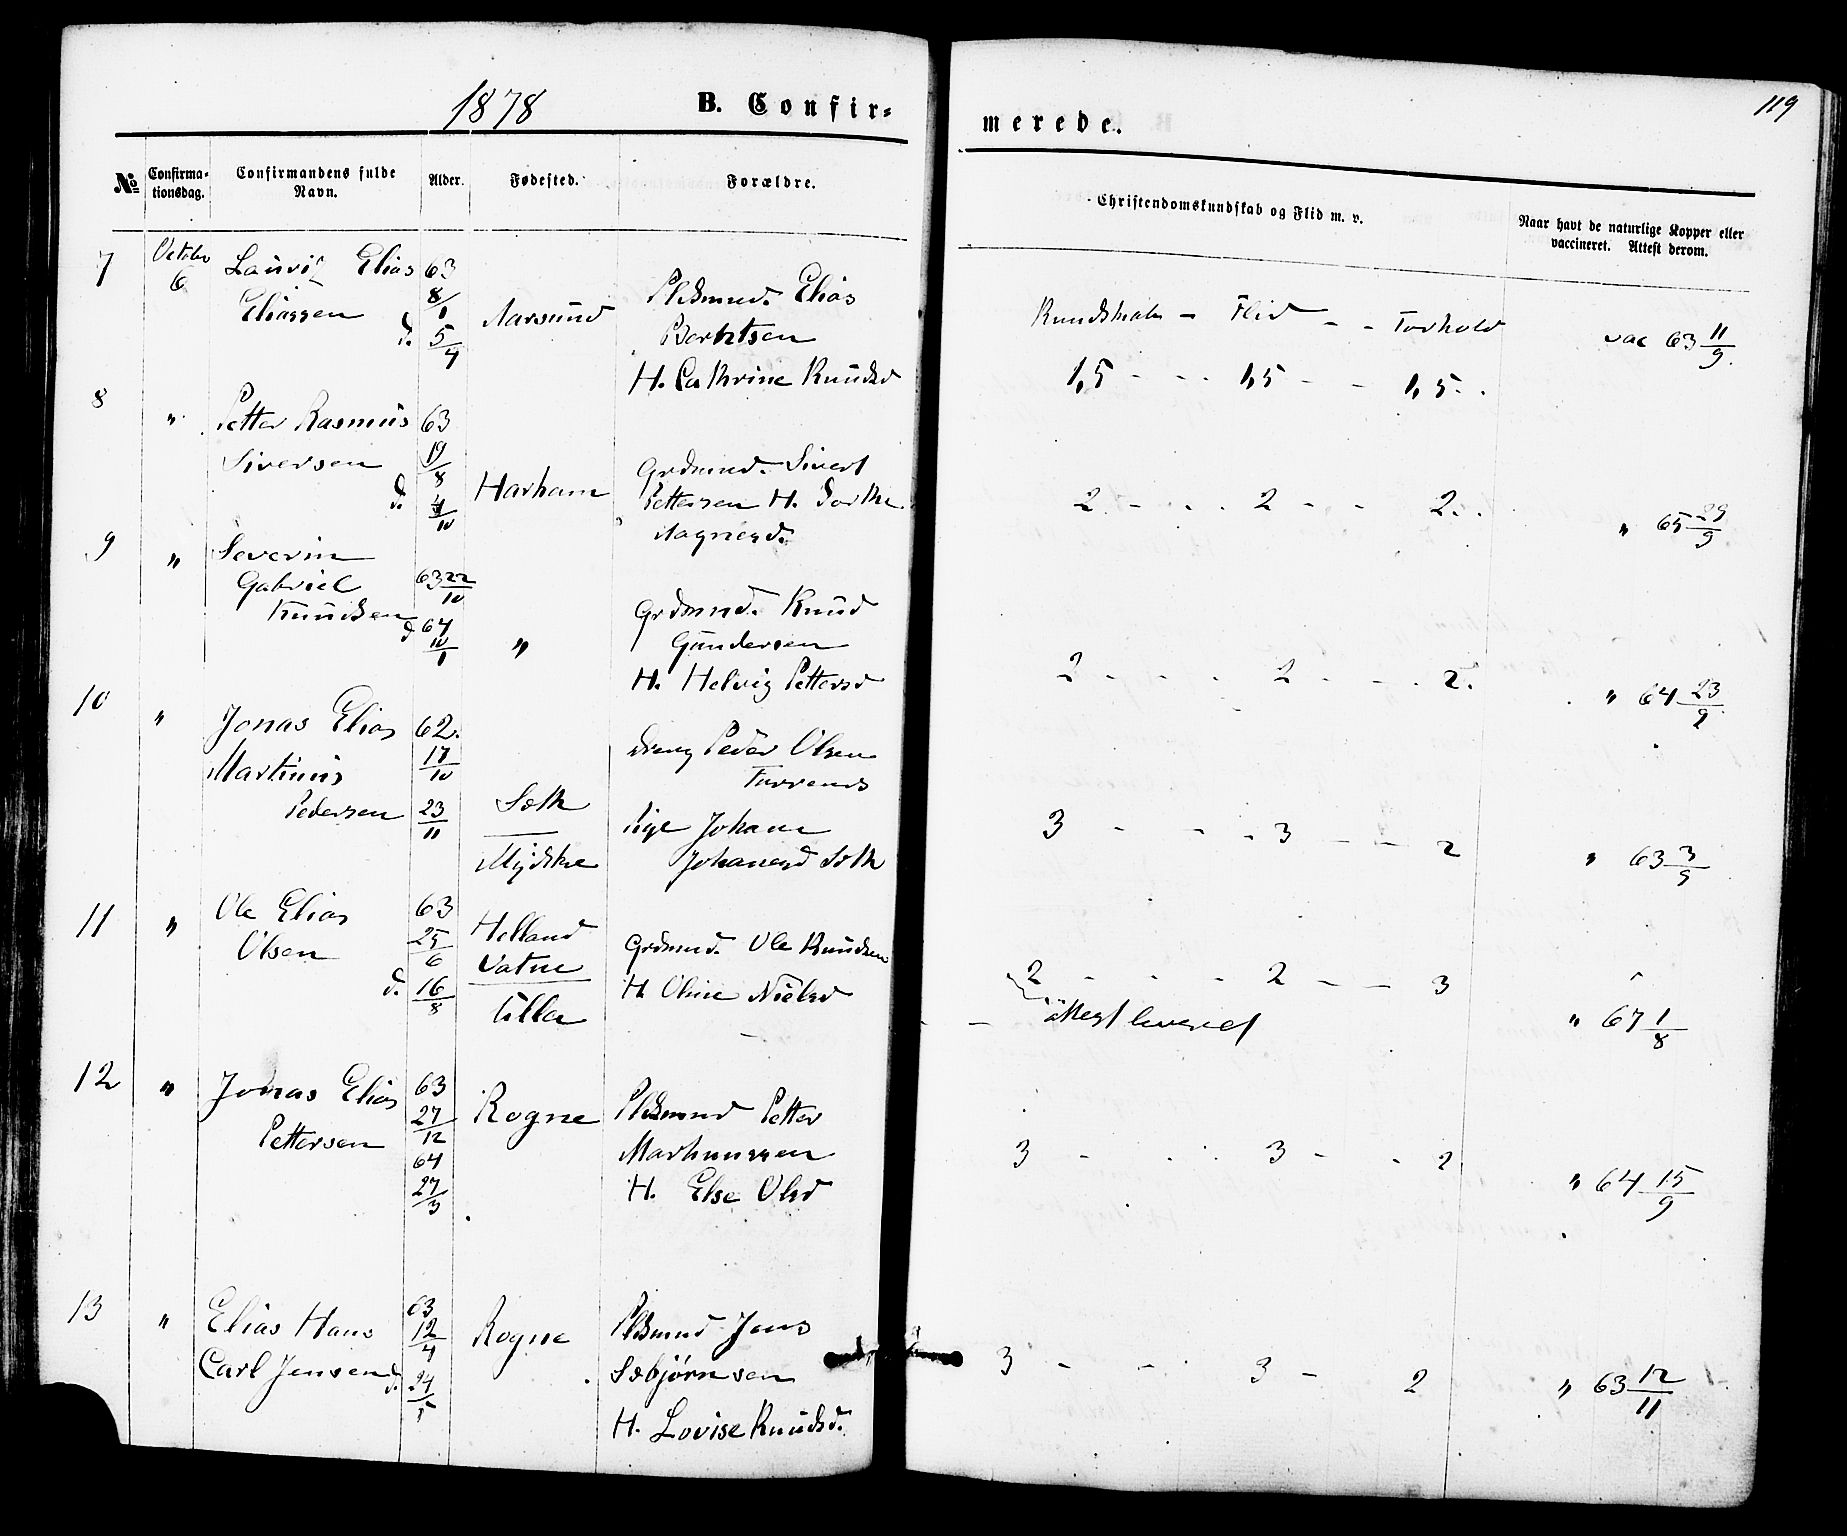 1878
B. Confir-
merede.
119
№
Confirma-
tionsdag.
Confirmandens fulde
Navn.
Alder.
Fødested.
Forældre.
Christendomskundskab og Flid m. v.
Naar havt de naturlige Kopper eller
vaccineret. Attest derom.
7 October 6 Elias 63
Eliassen 8/1
d. 5/4
Aarsund
Elias
Berntsen
H. Cathrine Knudsd
Kundskab - Flid - - Forhold
1,5 - - - 1,5 - - 1,5.
vac 63 11/9
8 " Petter Rasmus 63
Siversen 19/8
d. 4/10
Harham
Grdmnd. Sivert
Pettersen H.
2 - - - 2 - - 2
" 65 29/9
9 " Severin
Gabriel 63 22/10
Knudsen d. 64 10/1
"
Grdmnd. Knud
Gundersen
H. Helvig Pettersd
2 - - - 2 - - 2.
" 64 23/9
10 " Jonas Elias 62
Martinus 17/10
Pedersen 23/11
Dreng Peder Olsen
Pige Johane
3 - - - 3 - - 2
" 63 3/9
11 " Ole Elias 63
Olsen 25/6
d. 16/8
Helland
Vatne
Grdmnd. Ole Knudsen
H. Oline Nielsd
2 - - - 2 - - 3
Attest leveret
" 67 1/8
12 " Jonas Elias 63
Pettersen 27/12
64
27/3
Rogne
Pldsmnd Petter
H. Else Olsd
3 - - - 3 - - 2
" 64 15/9
13 " Elias Hans 63
12/4
Carl Jensen d. 24/5
Rogne
Pldsmnd Jens
Sæbjørnsen
H. Lovise Knudsd.
3 - - 3 - 2
" 63 12/11